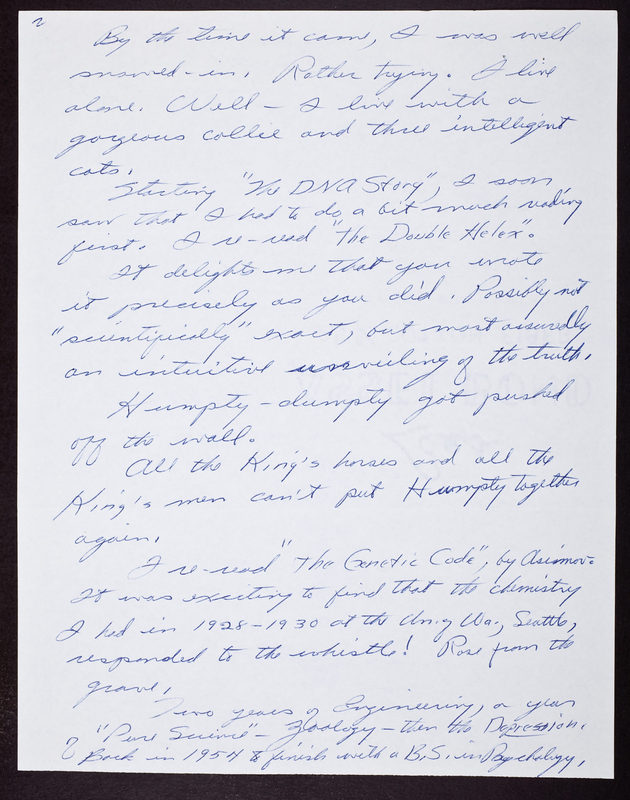 2
By the time it came, I was well
snowed-in. Rather trying. I live
alone. Well - I live with a
gorgeous collie and three intelligent
cats.
Starting "The DNA Story", I soon
saw that I had to do a bit much reading
first. I re-read "The Double Helex".
It delights me that you wrote
it precisely as you did. Possibly not
"scientifically" exact, but most assuredly
an intuitive unveiling of the truth.
Humpty-dumpty got pushed
off the wall.
All the King's horses and all the
King's men can't put Humpty together
again.
I re-read "The Genetic Code", by Asimov.
It was exciting to find that the chemistry
I had in 1928-1930 at the Univ Wa., Seattle,
responded to the whistle! Rose from the
grave.
Two years of Engineering, a year
"Pure Science" - Zoology - then the Depression.
Back in 1954 to finish with a B.S. in Psychology,